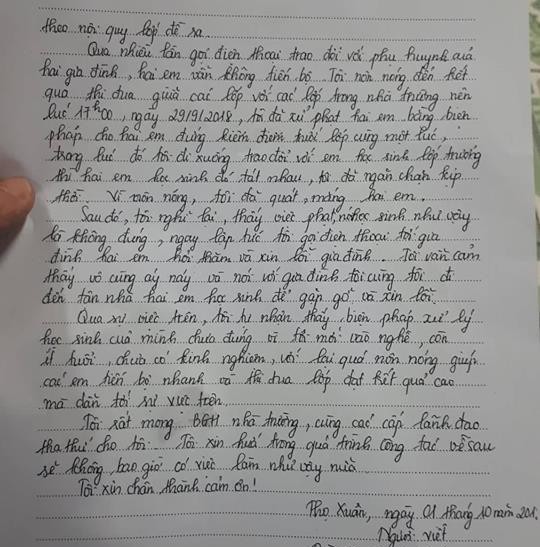 theo nội quy lớp đề ra.
Qua nhiều lần gọi điện thoại trao đổi với phụ huynh của
hai gia đình, hai em vẫn không tiến bộ. Tôi nôn nóng đến kết
quả thi đua giữa các lớp với các lớp trong nhà trường nên
lúc 17h00, ngày 29/9/2018, tôi đã xử phạt hai em bằng biện
pháp cho hai em đứng kiểm điểm trước lớp cùng một lúc,
trong lúc đó tôi đi xuống trao đổi với em học sinh lớp trưởng
thì hai em học sinh đó tát nhau, tôi đã ngăn chặn kịp
thời. Vì nôn nóng, tôi đã quát, mắng hai em.
Sau đó, tôi nghĩ lại, thấy việc phạt học sinh như vậy
là không đúng, ngay lập tức tôi gọi điện thoại tới gia
đình hai em hỏi thăm và xin lỗi gia đình. Tôi vẫn cảm
thấy vô cùng áy náy và nói với gia đình tôi cùng tôi đi
đến tận nhà hai em học sinh để gặp gỡ và xin lỗi.
Qua sự việc trên, tôi tự nhận thấy, biện pháp xử lý
học sinh của mình chưa đúng vì tôi mới vào nghề, còn
ít tuổi, chưa có kinh nghiệm, với lại quá nôn nóng giúp
các em tiến bộ nhanh và thi đua lớp đạt kết quả cao
mà dẫn tới sự việc trên.
Tôi rất mong BGH nhà trường, cùng các cấp lãnh đạo
tha thứ cho tôi. Tôi xin hứa trong quá trình công tác về sau
sẽ không bao giờ có việc làm như vậy nữa.
Tôi xin chân thành cảm ơn!
Thọ Xuân, ngày 01 tháng 10 năm 201
Người viết